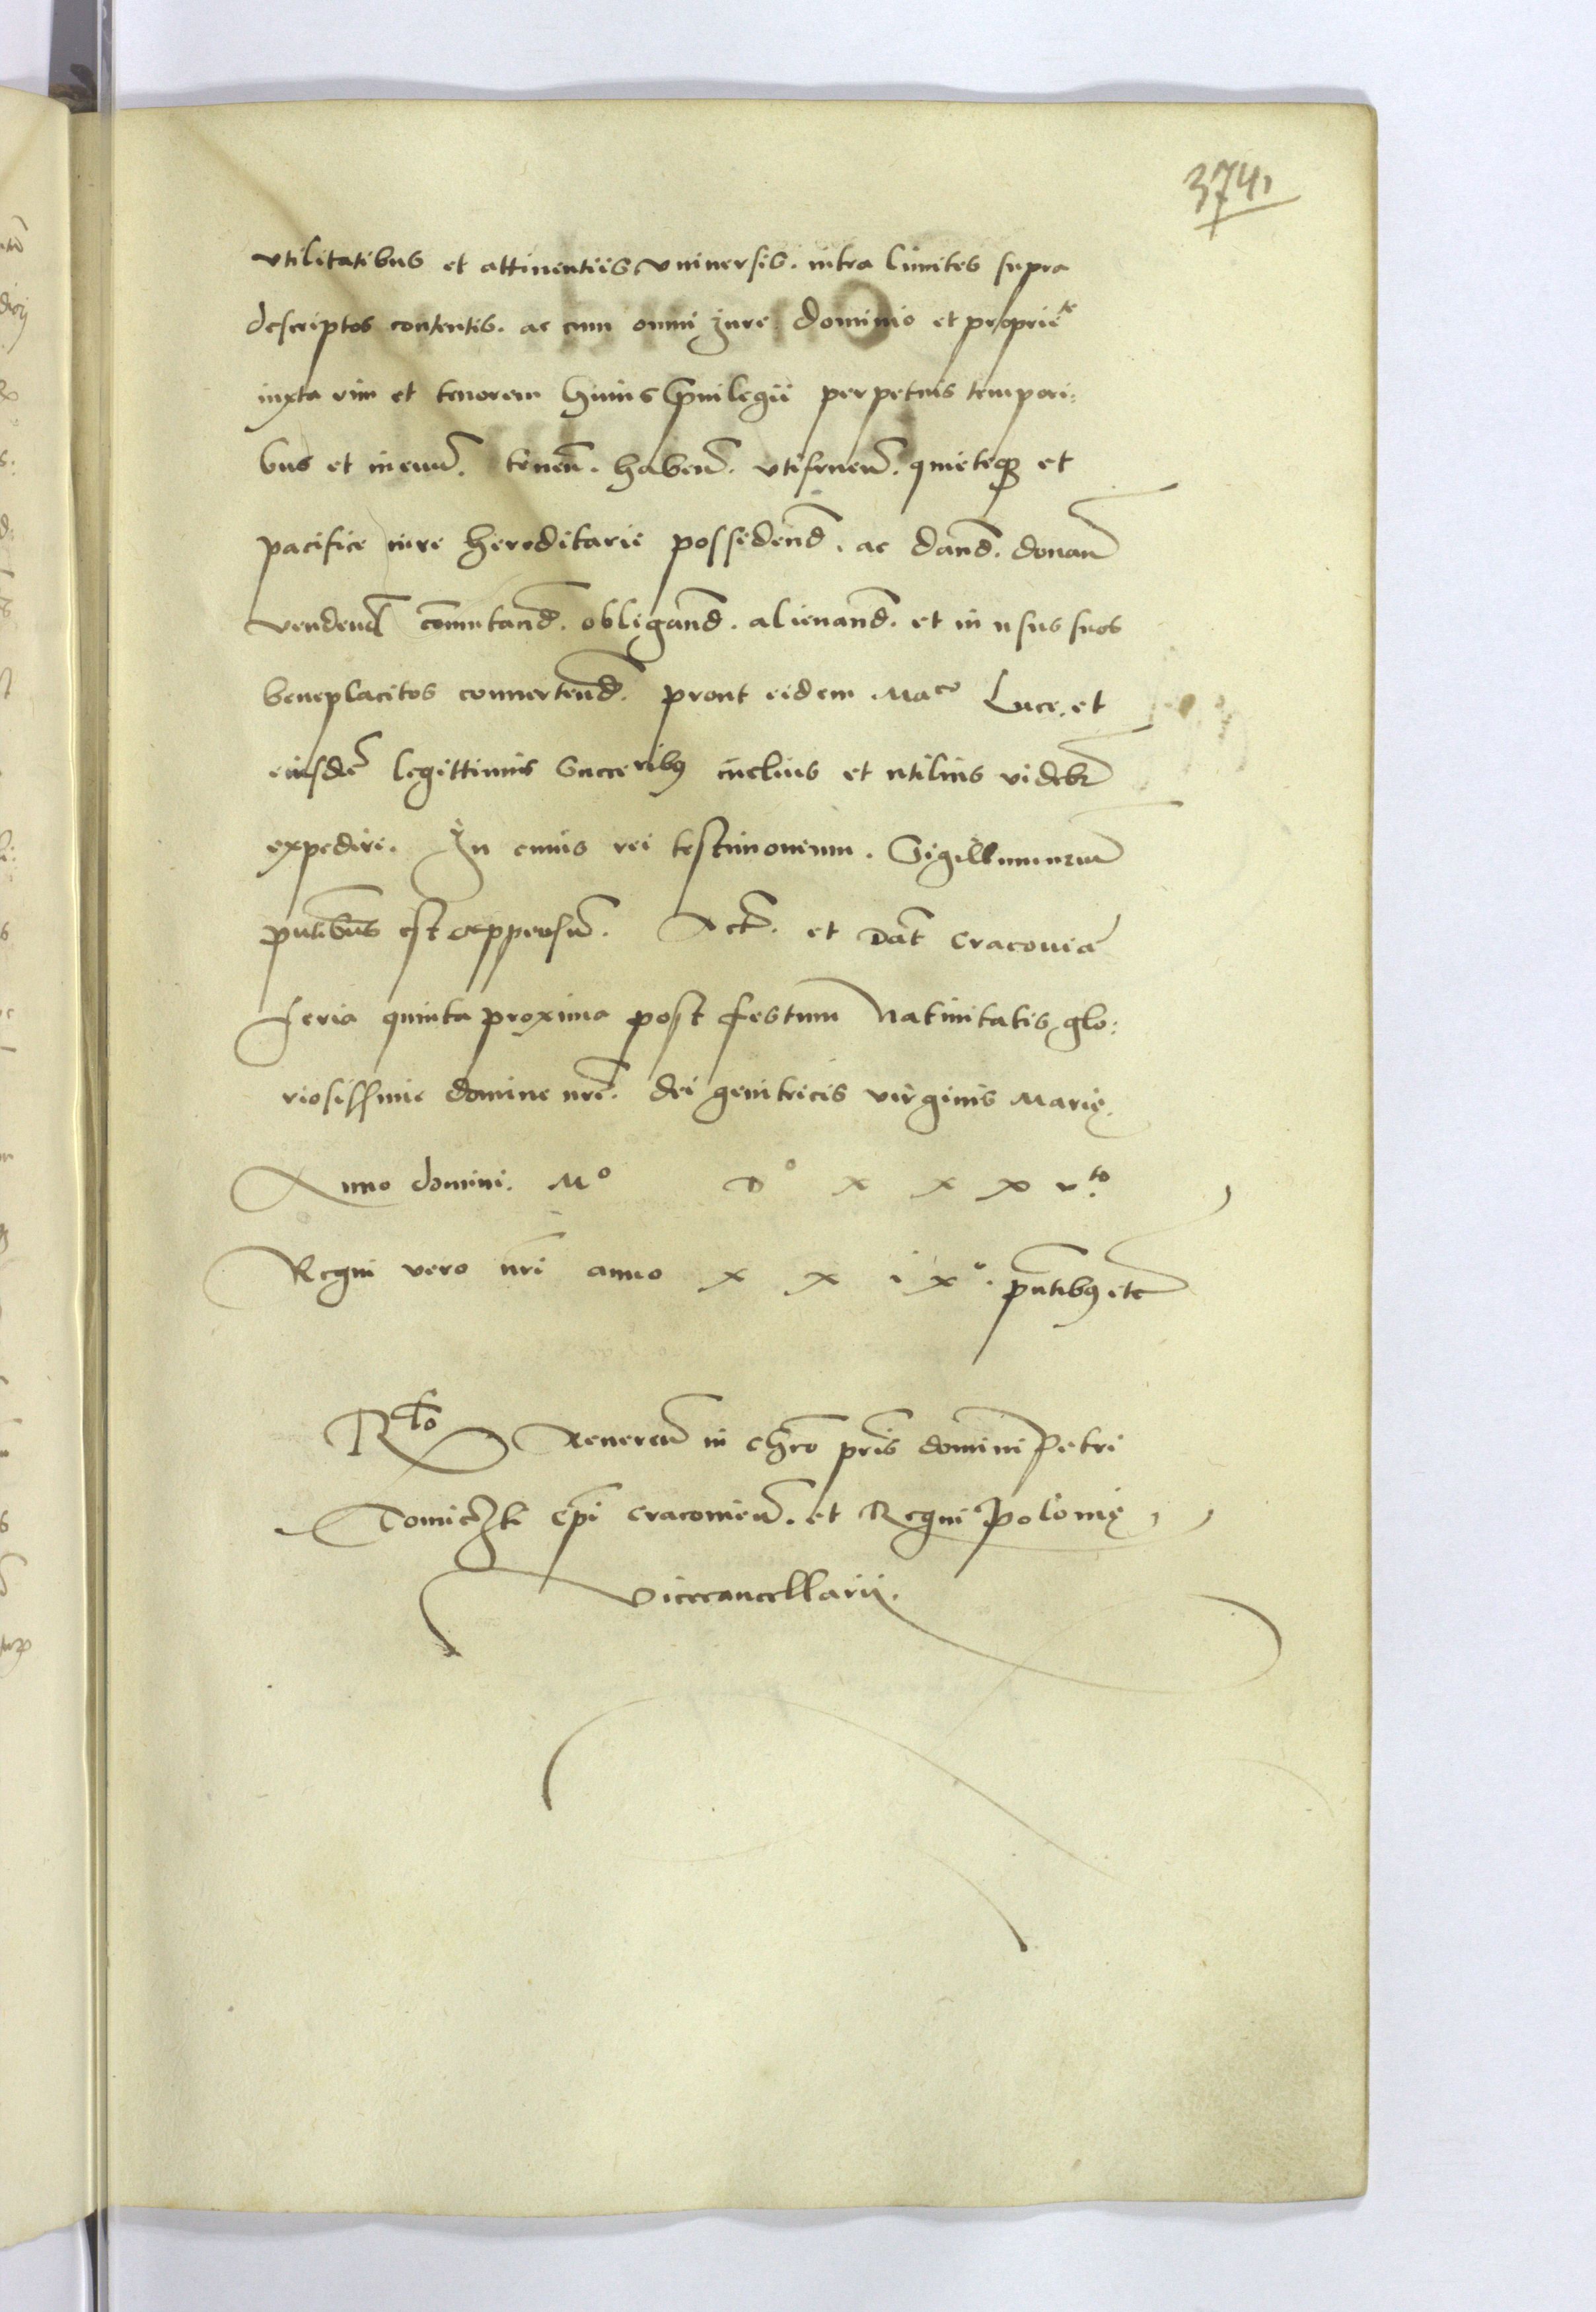 3741
vtilitatibus et attinentiis vniuersis. intra limites supra
descriptos contentis. ac cum omni jure dominio et propriete
iuxta vim et tenorem huius Priuilegii perpetuis tempori:
bus et ineuum. tenend. habend. vtifruend. quieteque et
pacifice iure hereditarie possedend. ac dand. donand
vendend commutand. obligand. alienand. et in usus suos
beneplacitos conuertend. prout eidem Maco Luce. et
eiusdem legittimis Succeribus melius et utilius videbr
expedire. In cuius rei testimonium. Sigillum nrum
pntibus est appensum. Actum. et Dat Cracouie
feria quinta proxima post festum Natiuitatis glo:
riosissime domine nre. dei genitricis virginis Marie.
Anno domini. Mo Do x x x vto.
Regni vero nri anno x x i xo. pntibus etc
Rcto Reuerend in chro pris domini Petri
Tomiczki epi Cracouien. et Regni Polonie
Vicecancellarii.